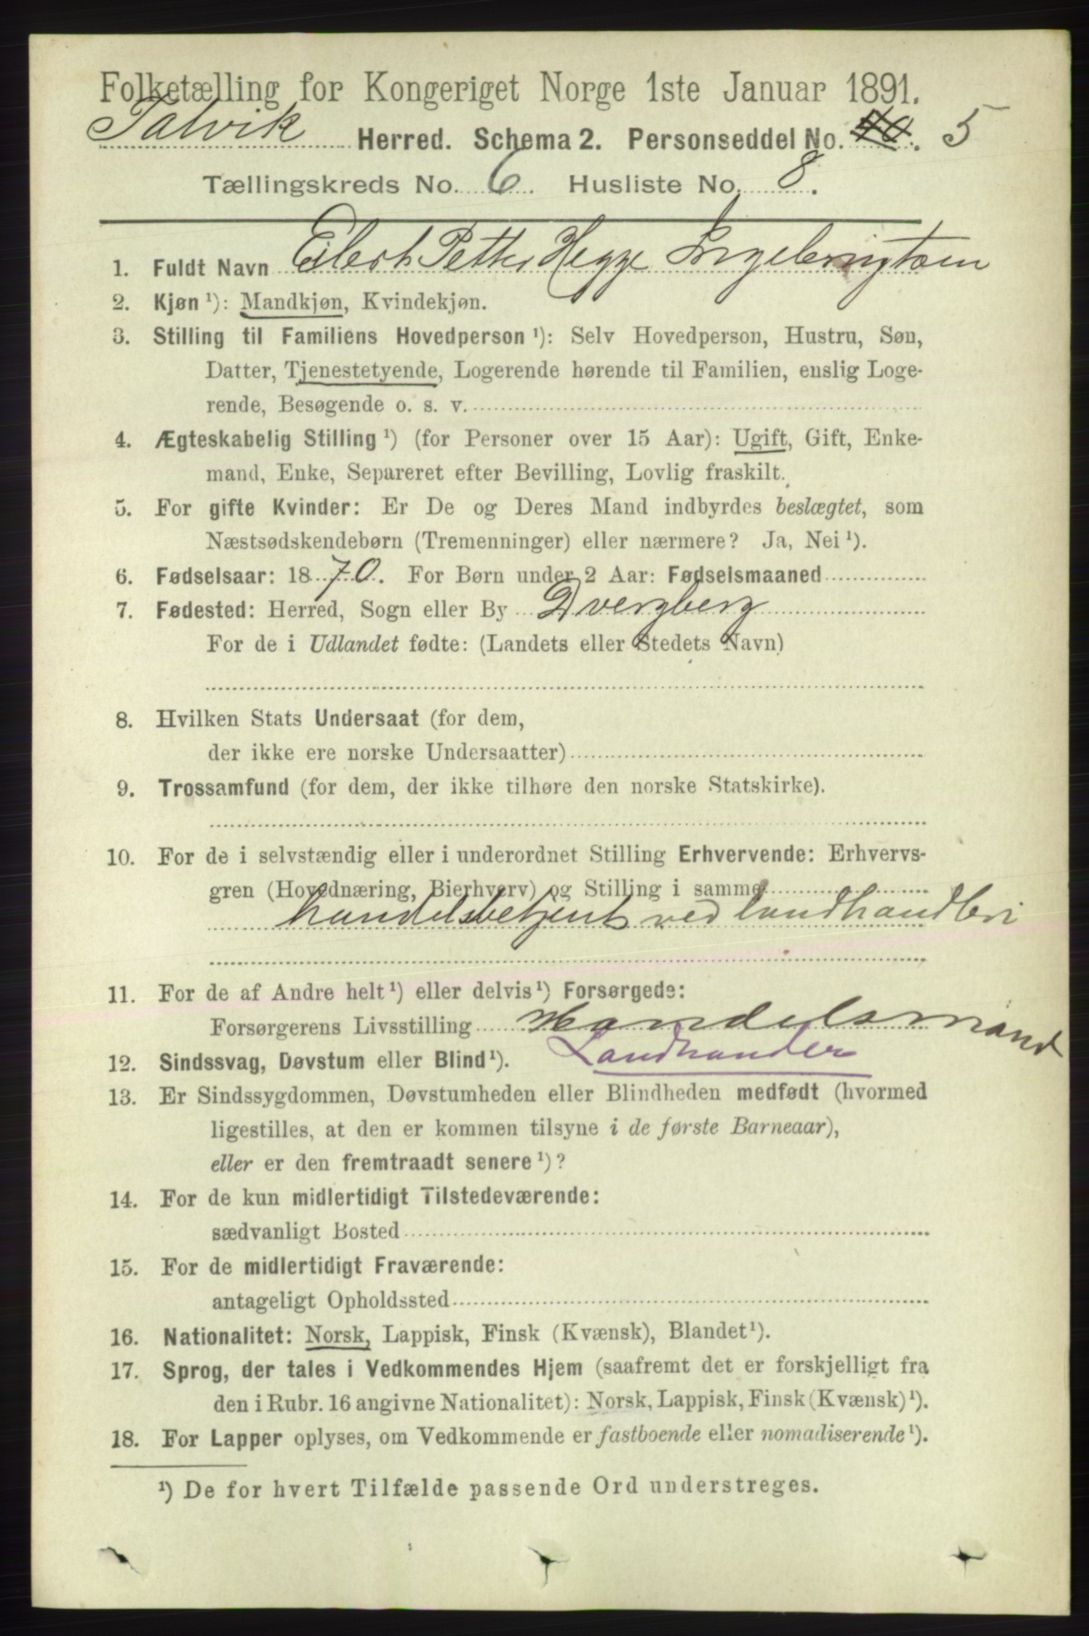 Folketælling for Kongeriget Norge 1ste Januar 1891.
Talvik Herred. Schema 2. Personseddel No. 40. 5
Tællingskreds No. 6. Husliste No. 8.
1. Fuldt Navn Eilert Petter Hegge Ingebrigtsen
2. Kjøn ¹): Mandkjøn, Kvindekjøn.
3. Stilling til Familiens Hovedperson ¹): Selv Hovedperson, Hustru, Søn,
Datter, Tjenestetyende, Logerende hørende til Familien, enslig Loge-
rende, Besøgende o. s. v.
4. Ægteskabelig Stilling ¹) (for Personer over 15 Aar): Ugift, Gift, Enke-
mand, Enke, Separeret efter Bevilling, Lovlig fraskilt.
5. For gifte Kvinder: Er De og Deres Mand indbyrdes beslægtet, som
Næstsødskendebørn (Tremenninger) eller nærmere? Ja, Nei ¹).
6. Fødselsaar: 1870. For Børn under 2 Aar: Fødselsmaaned
7. Fødested: Herred, Sogn eller By Dvergberg
For de i Udlandet fødte: (Landets eller Stedets Navn)
8. Hvilken Stats Undersaat (for dem,
der ikke ere norske Undersaatter)
9. Trossamfund (for dem, der ikke tilhøre den norske Statskirke).
10. For de i selvstændig eller i underordnet Stilling Erhvervende: Erhvervs-
gren (Hovednæring, Bierhverv) og Stilling i samme
handelsbetjent ved landhandleri
11. For de af Andre helt ¹) eller delvis ¹) Forsørgede:
Forsørgerens Livsstilling Handelsmand
12. Sindssvag, Døvstum eller Blind ¹). Landhandler
13. Er Sindssygdommen, Døvstumheden eller Blindheden medfødt (hvormed
ligestilles, at den er kommen tilsyne i de første Barneaar),
eller er den fremtraadt senere ¹)?
14. For de kun midlertidigt Tilstedeværende:
sædvanligt Bosted
15. For de midlertidigt Fraværende:
antageligt Opholdssted
16. Nationalitet: Norsk, Lappisk, Finsk (Kvænsk), Blandet ¹).
17. Sprog, der tales i Vedkommendes Hjem (saafremt det er forskjelligt fra
den i Rubr. 16 angivne Nationalitet): Norsk, Lappisk, Finsk (Kvænsk) ¹).
18. For Lapper oplyses, om Vedkommende er fastboende eller nomadiserende ¹).
¹) De for hvert Tilfælde passende Ord understreges.